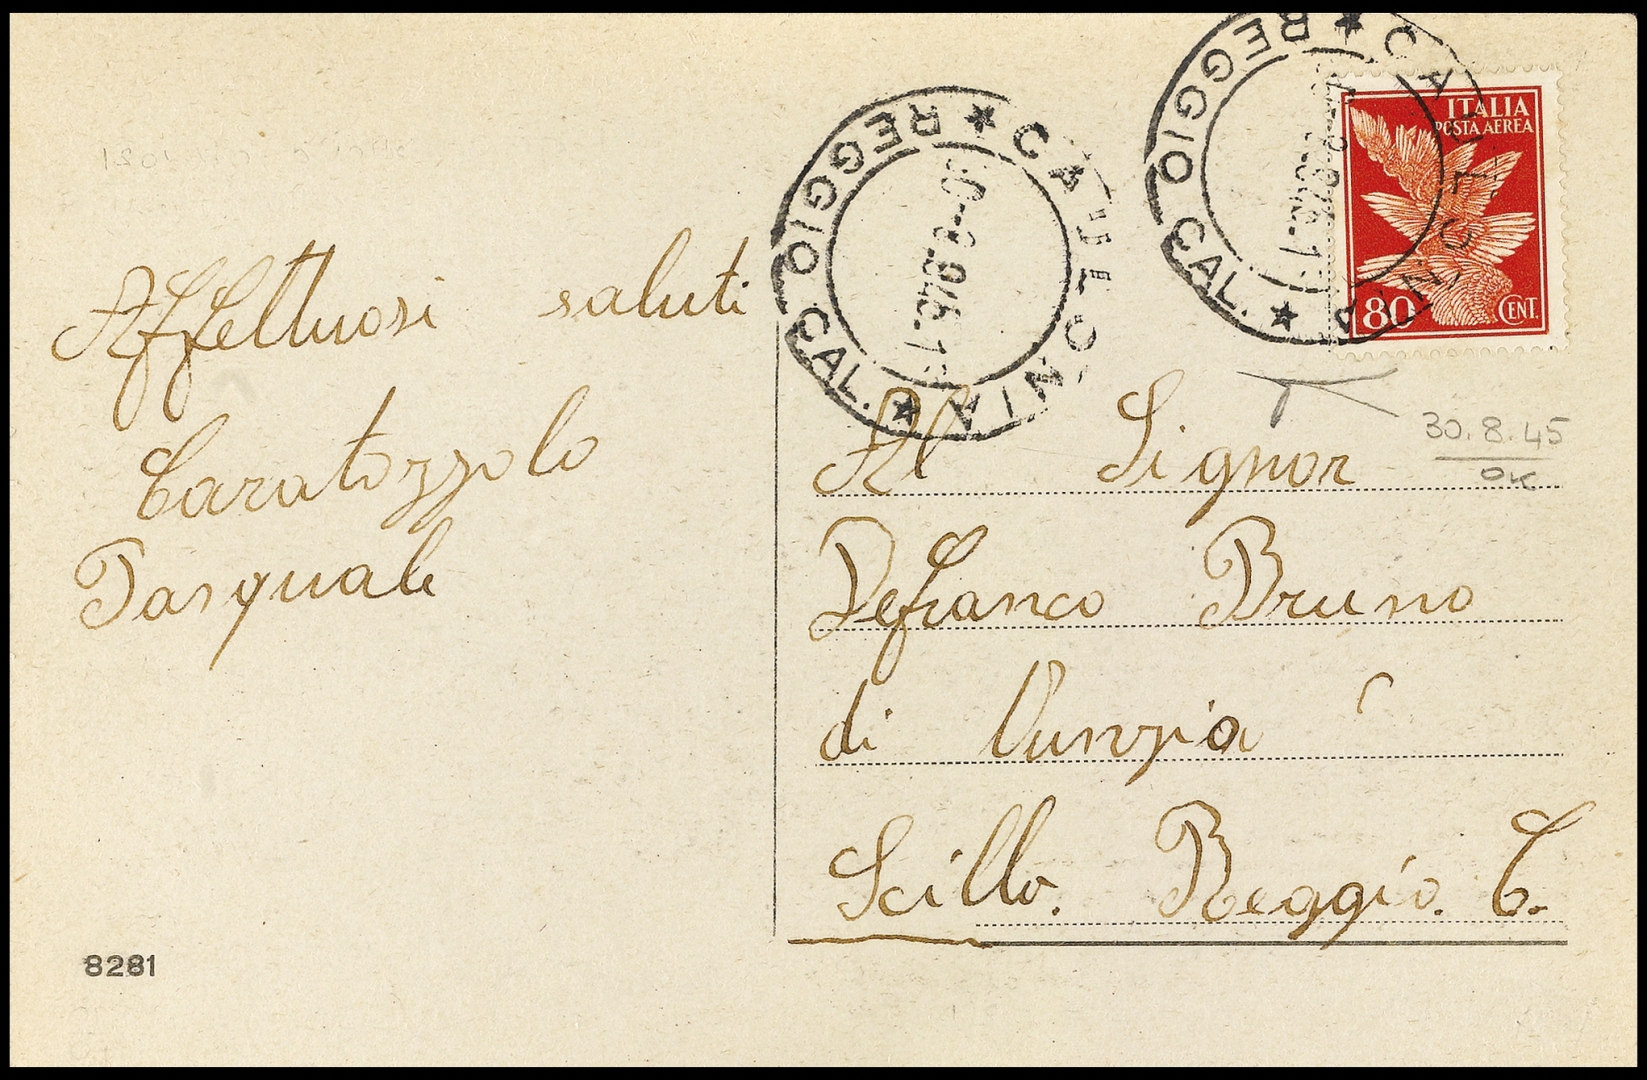 Affettuosi saluti
Caratozzolo
Pasquale
8281
★ CAULONIA ★ REGGIO CAL.
★ CAULONIA ★ REGGIO CAL.
ITALIA
POSTA AEREA
80 CENT.
30.8.45
OK
Al Signor
Defranco Bruno
di Nunzia
Scilla. Reggio. C.